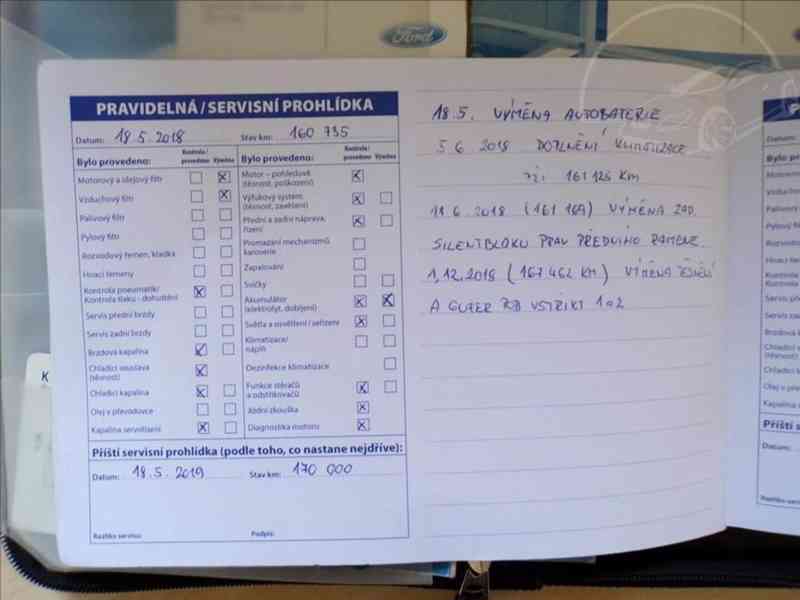 Ford
PRAVIDELNÁ / SERVISNÍ PROHLÍDKA
Datum: 18.5.2018 Stav km: 160 735
Bylo provedeno: Kontrola/provedeno Výměna
Motorový a olejový filtr
Vzduchový filtr
Palivový filtr
Pylový filtr
Rozvodový řemen, kladka
Hnací řemeny
Kontrola pneumatik/
Kontrola tlaku - dohuštění
Servis přední brzdy
Servis zadní brzdy
Brzdová kapalina
Chladící soustava
(těsnost)
Chladící kapalina
Olej v převodovce
Kapalina servořízení
Bylo provedeno: Kontrola/provedeno Výměna
Motor – pohledově
(těsnost, poškození)
Výfukový systém
(těsnost, zavěšení)
Přední a zadní náprava,
řízení
Promazání mechanizmů
karoserie
Zapalování
Svíčky
Akumulátor
(elektrolyt, dobíjení)
Světla a osvětlení / seřízení
Klimatizace/
náplň
Dezinfekce klimatizace
Funkce stěračů
a odstřikovačů
Jízdní zkouška
Diagnostika motoru
Příští servisní prohlídka (podle toho, co nastane nejdříve):
Datum: 18.5.2019 Stav km: 170 000
Razítko servisu: Podpis:
18.5. VÝMĚNA AUTOBATERIE
5.6.2018 DOPLNĚNÍ KLIMATIZACE
PŘI 161 128 KM
11.6.2018 (161 169) VÝMĚNA ZAD.
SILENTBLOKU PRAV PŘEDNÍHO RAMENE.
1.12.2018 (167 462 KM) VÝMĚNA TĚSNĚNÍ
A GUFER POD VSTŘIKY 1 a 2
K
Datum:
Bylo pro
Motorový
Vzduchov
Palivový
Pylový filt
Rozvodov
Hnací řem
Kontrola
Kontrola
Servis pře
Servis zad
Brzdová k
Chladící s
(těsnost)
Chladící k
Olej v pře
Kapalina
Příští se
Datum:
Razítko serv